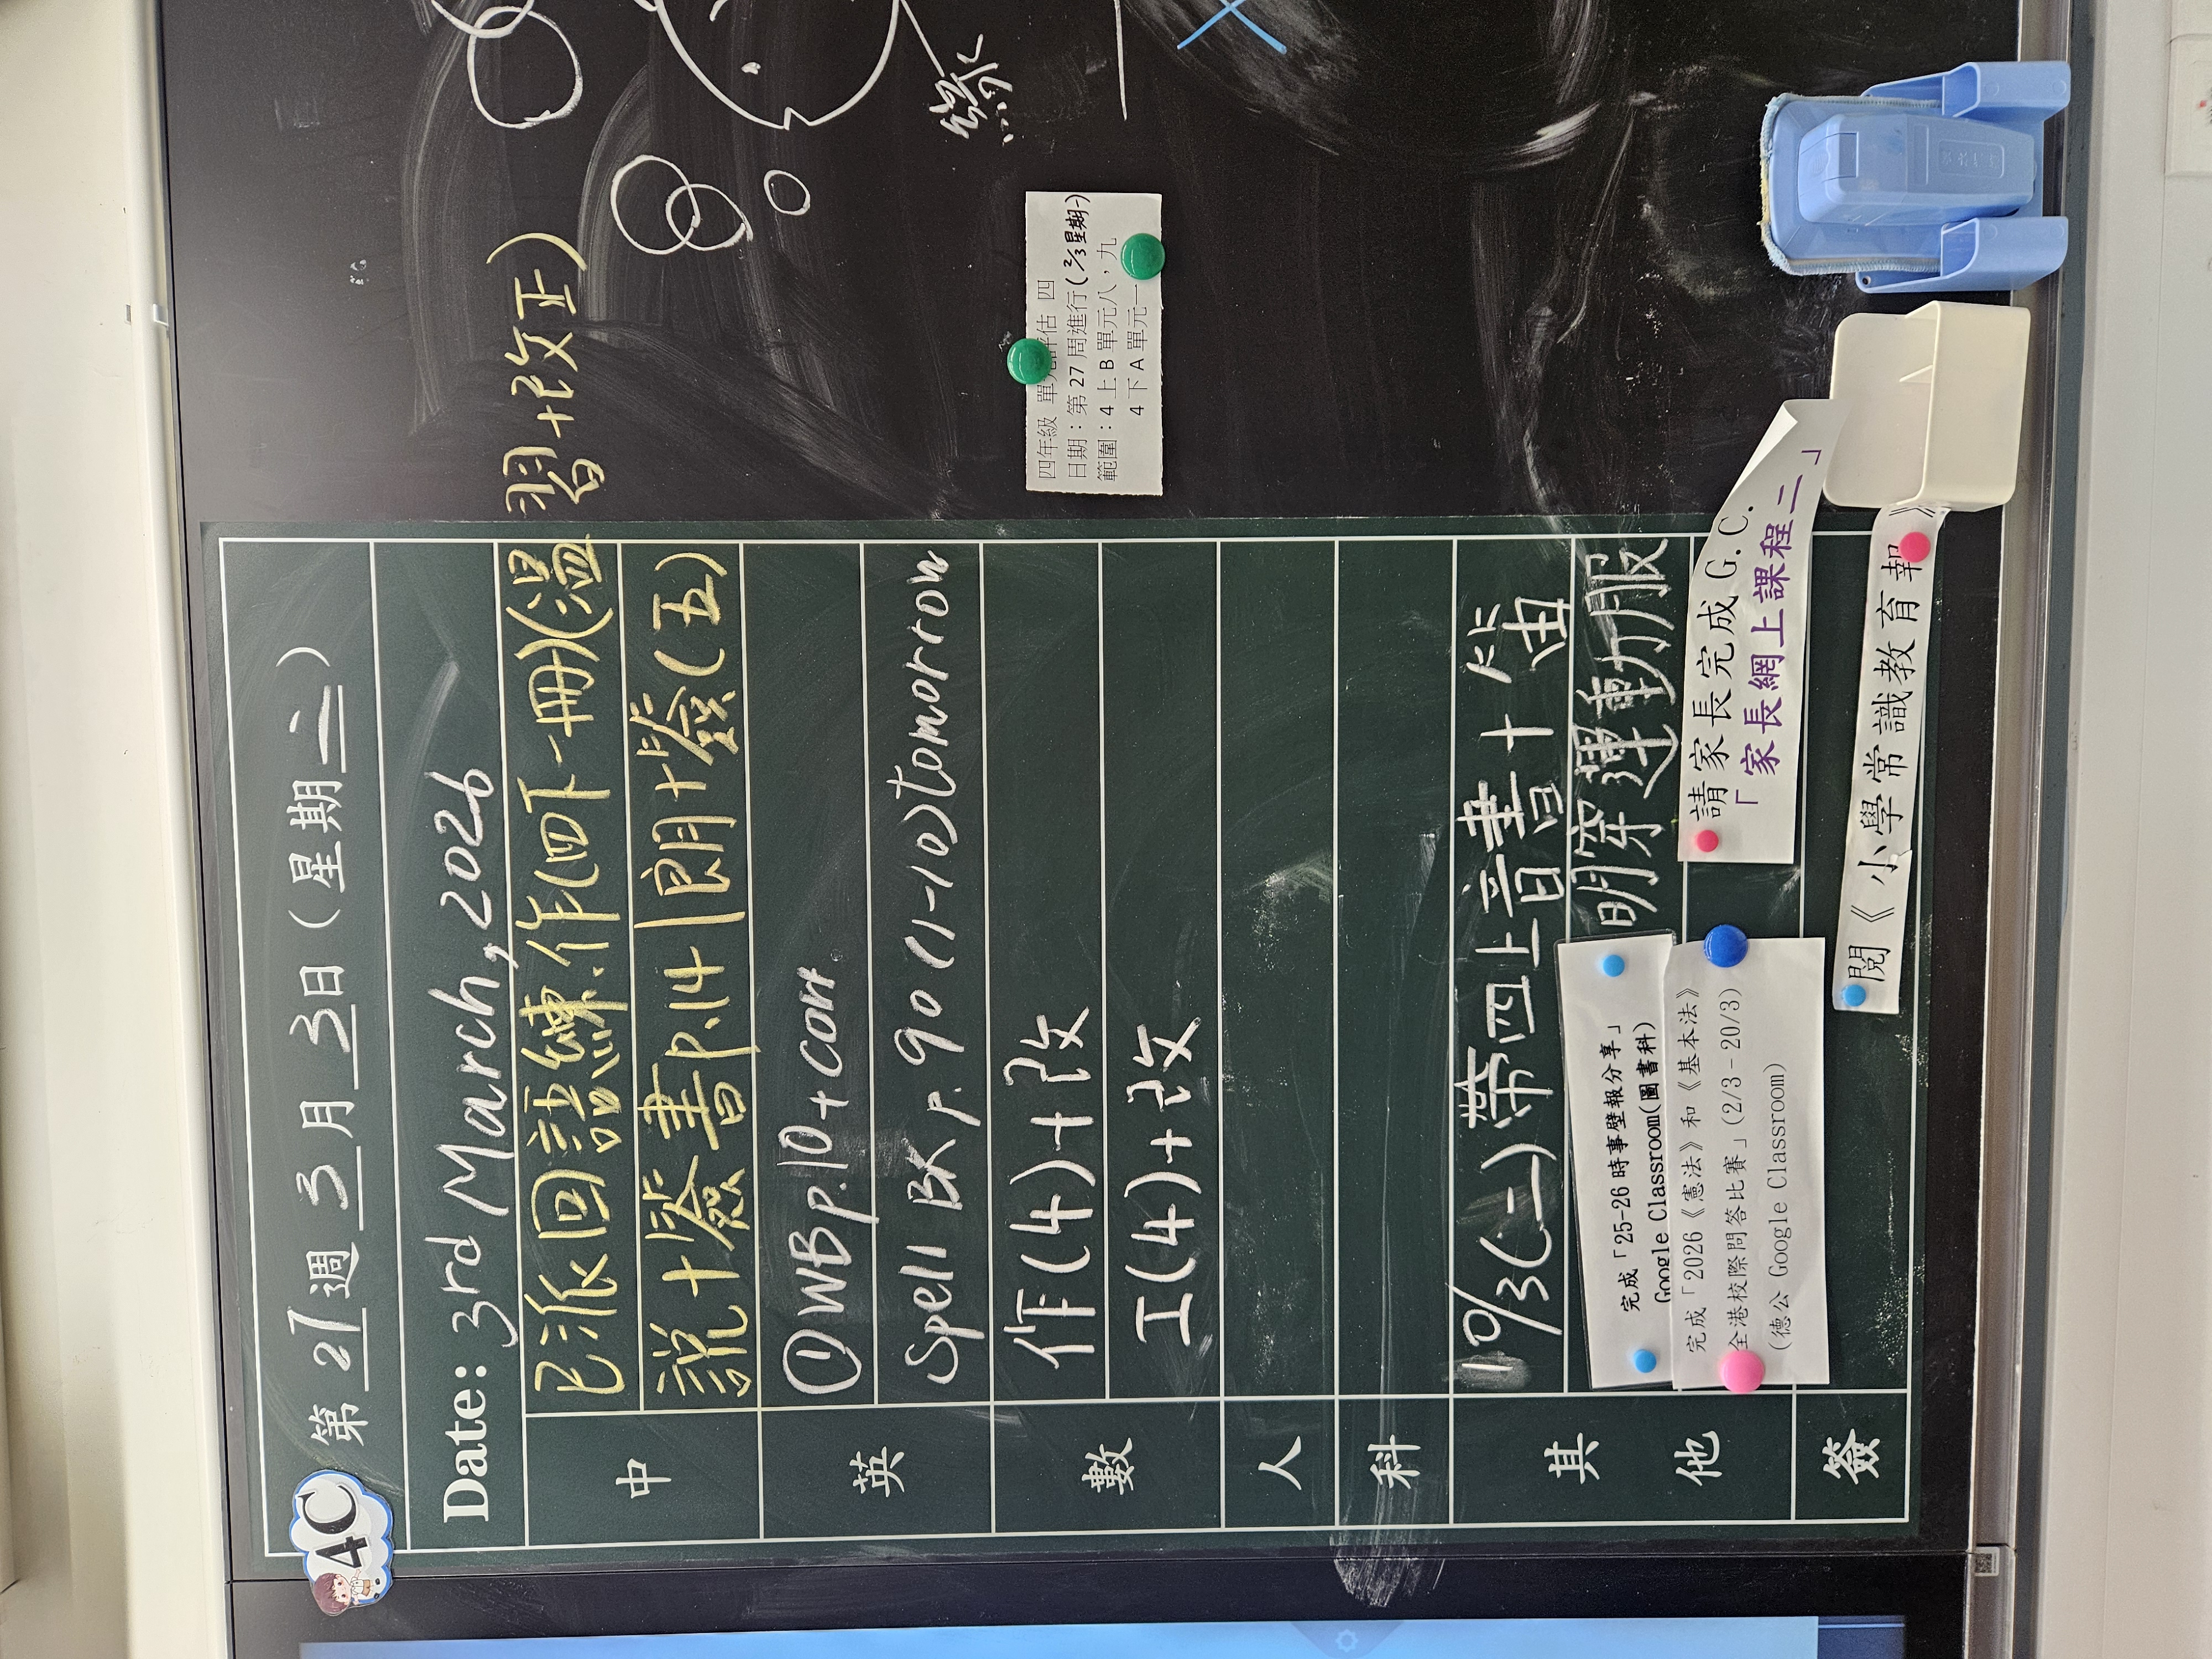 4C
第 27 週 3 月 3 日 (星期 二)
Date: 3rd March, 2026
中
已派回語練.作(四下一冊)(溫習+改正)
說+簽 書p.14 朗+簽(五)
英
①WB p.10 + corr
Spell BK p.90 (1-10) tomorrow
數
作(4)+改
工(4)+改
人
科
其他
10/3(二)帶四上音書+笛
明穿運動服
完成「25-26 時事壁報分享」
Google Classroom(圖書科)
完成「2026《憲法》和《基本法》
全港校際問答比賽」(2/3-20/3)
(德公 Google Classroom)
請家長完成 G.C.
「家長網上課程二」
簽
閱《小學常識教育報》
四年級 單元評估 四
日期：第 27 周進行(2/3 星期一)
範圍：4 上 B 單元八，九
4 下 A 單元一